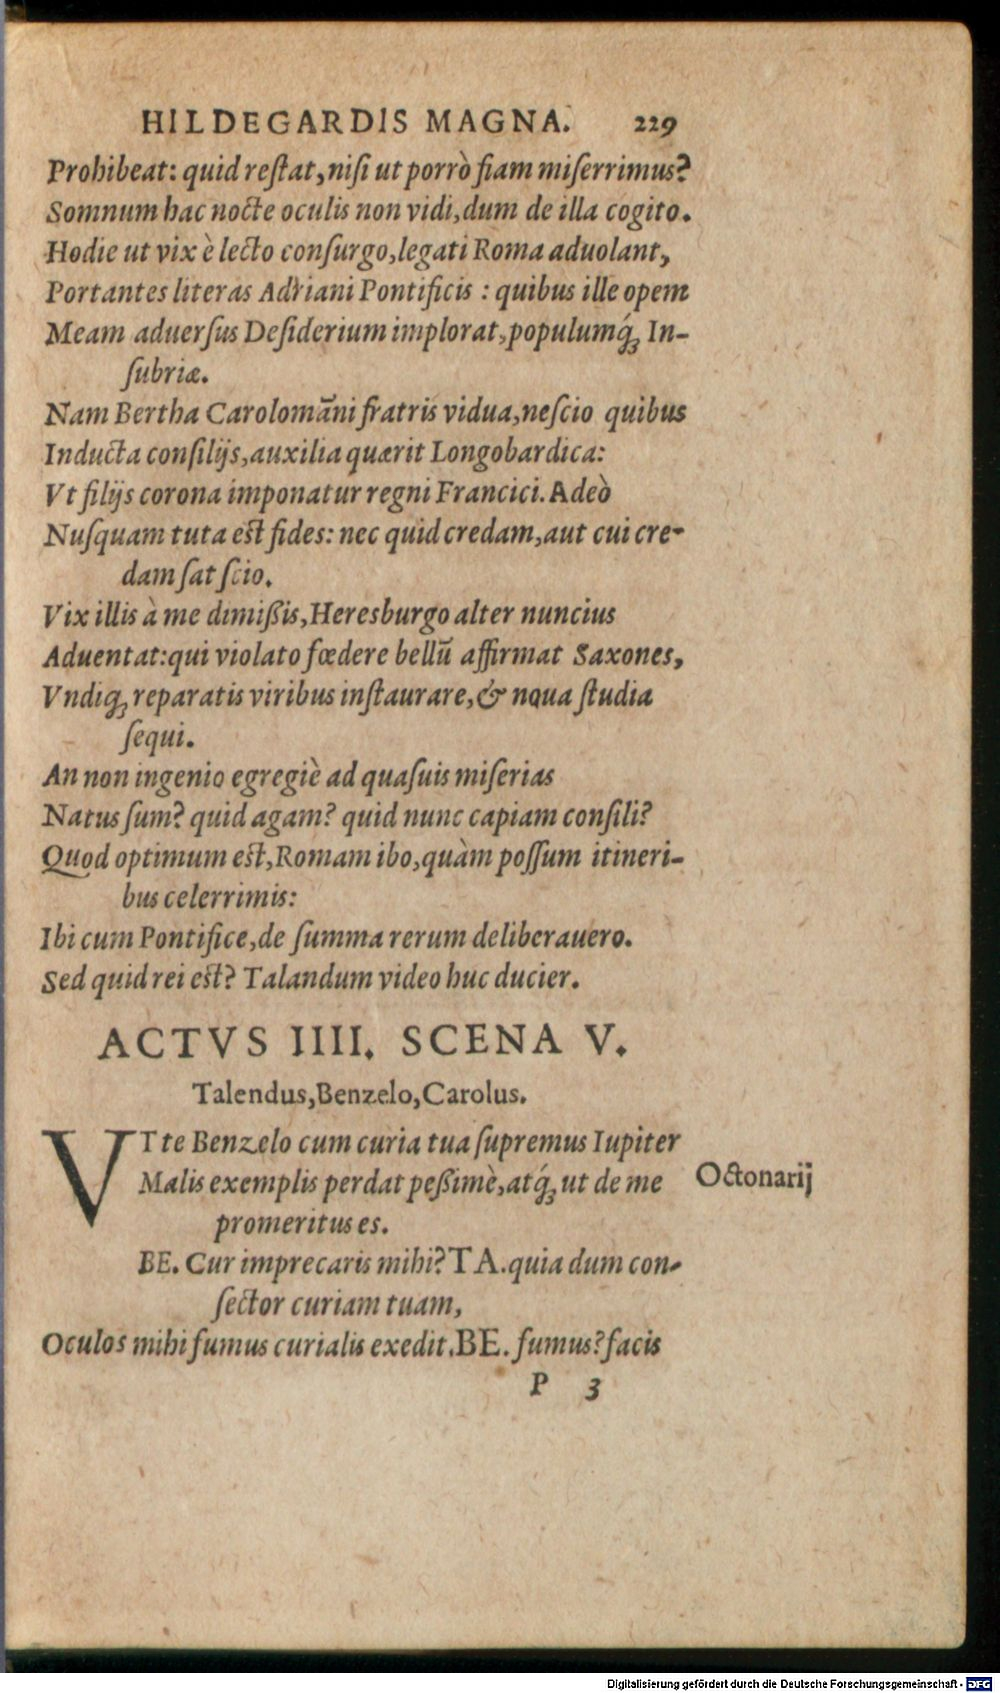 HILDEGARDIS MAGNA. 229
Prohibeat: quid reſtat, niſi ut porrò fiam miſerrimus?
Somnum hac nocte oculis non vidi, dum de illa cogito.
Hodie ut vix è lecto conſurgo, legati Roma aduolant,
Portantes literas Adriani Pontificis : quibus ille opem
Meam aduerſus Deſiderium implorat, populumq́ꝫ In-
ſubriæ.
Nam Bertha Carolomāni fratris vidua, neſcio quibus
Inducta conſilijs, auxilia quærit Longobardica:
Vt filijs corona imponatur regni Francici. Adeò
Nuſquam tuta eſt fides: nec quid credam, aut cui cre-
dam ſat ſcio.
Vix illis à me dimißis, Heresburgo alter nuncius
Aduentat: qui violato fœdere bellū affirmat Saxones,
Vndiqꝫ reparatis viribus inſtaurare, & noua ſtudia
ſequi.
An non ingenio egregiè ad quaſuis miſerias
Natus ſum? quid agam? quid nunc capiam conſili?
Quod optimum eſt, Romam ibo, quàm poſſum itineri-
bus celerrimis:
Ibi cum Pontifice, de ſumma rerum deliberauero.
Sed quid rei eſt? Talandum video huc ducier.
ACTVS IIII. SCENA V.
Talendus, Benzelo, Carolus.
VT te Benzelo cum curia tua ſupremus Iupiter
Malis exemplis perdat peßimè, atq́ꝫ ut de me
promeritus es.
Octonarij
BE. Cur imprecaris mihi? TA. quia dum con-
ſector curiam tuam,
Oculos mihi fumus curialis exedit. BE. fumus? facis
P 3
Digitalisierung gefördert durch die Deutsche Forschungsgemeinschaft - DFG